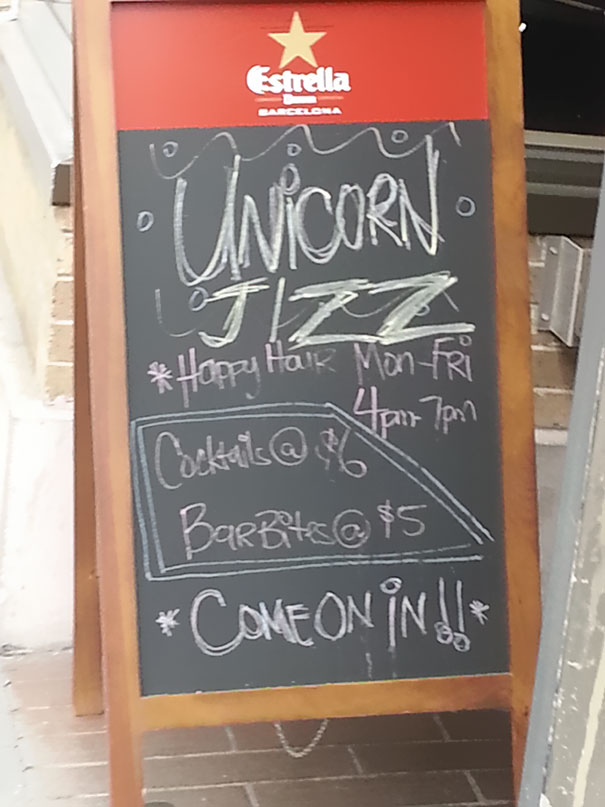 Estrella
Damm
BARCELONA
UNiCORN
JIZZ
*Happy Hour Mon-FRi
4pm-7pm
Cocktails @ $6
BaRBites @ $5
* COME ON iN!! *